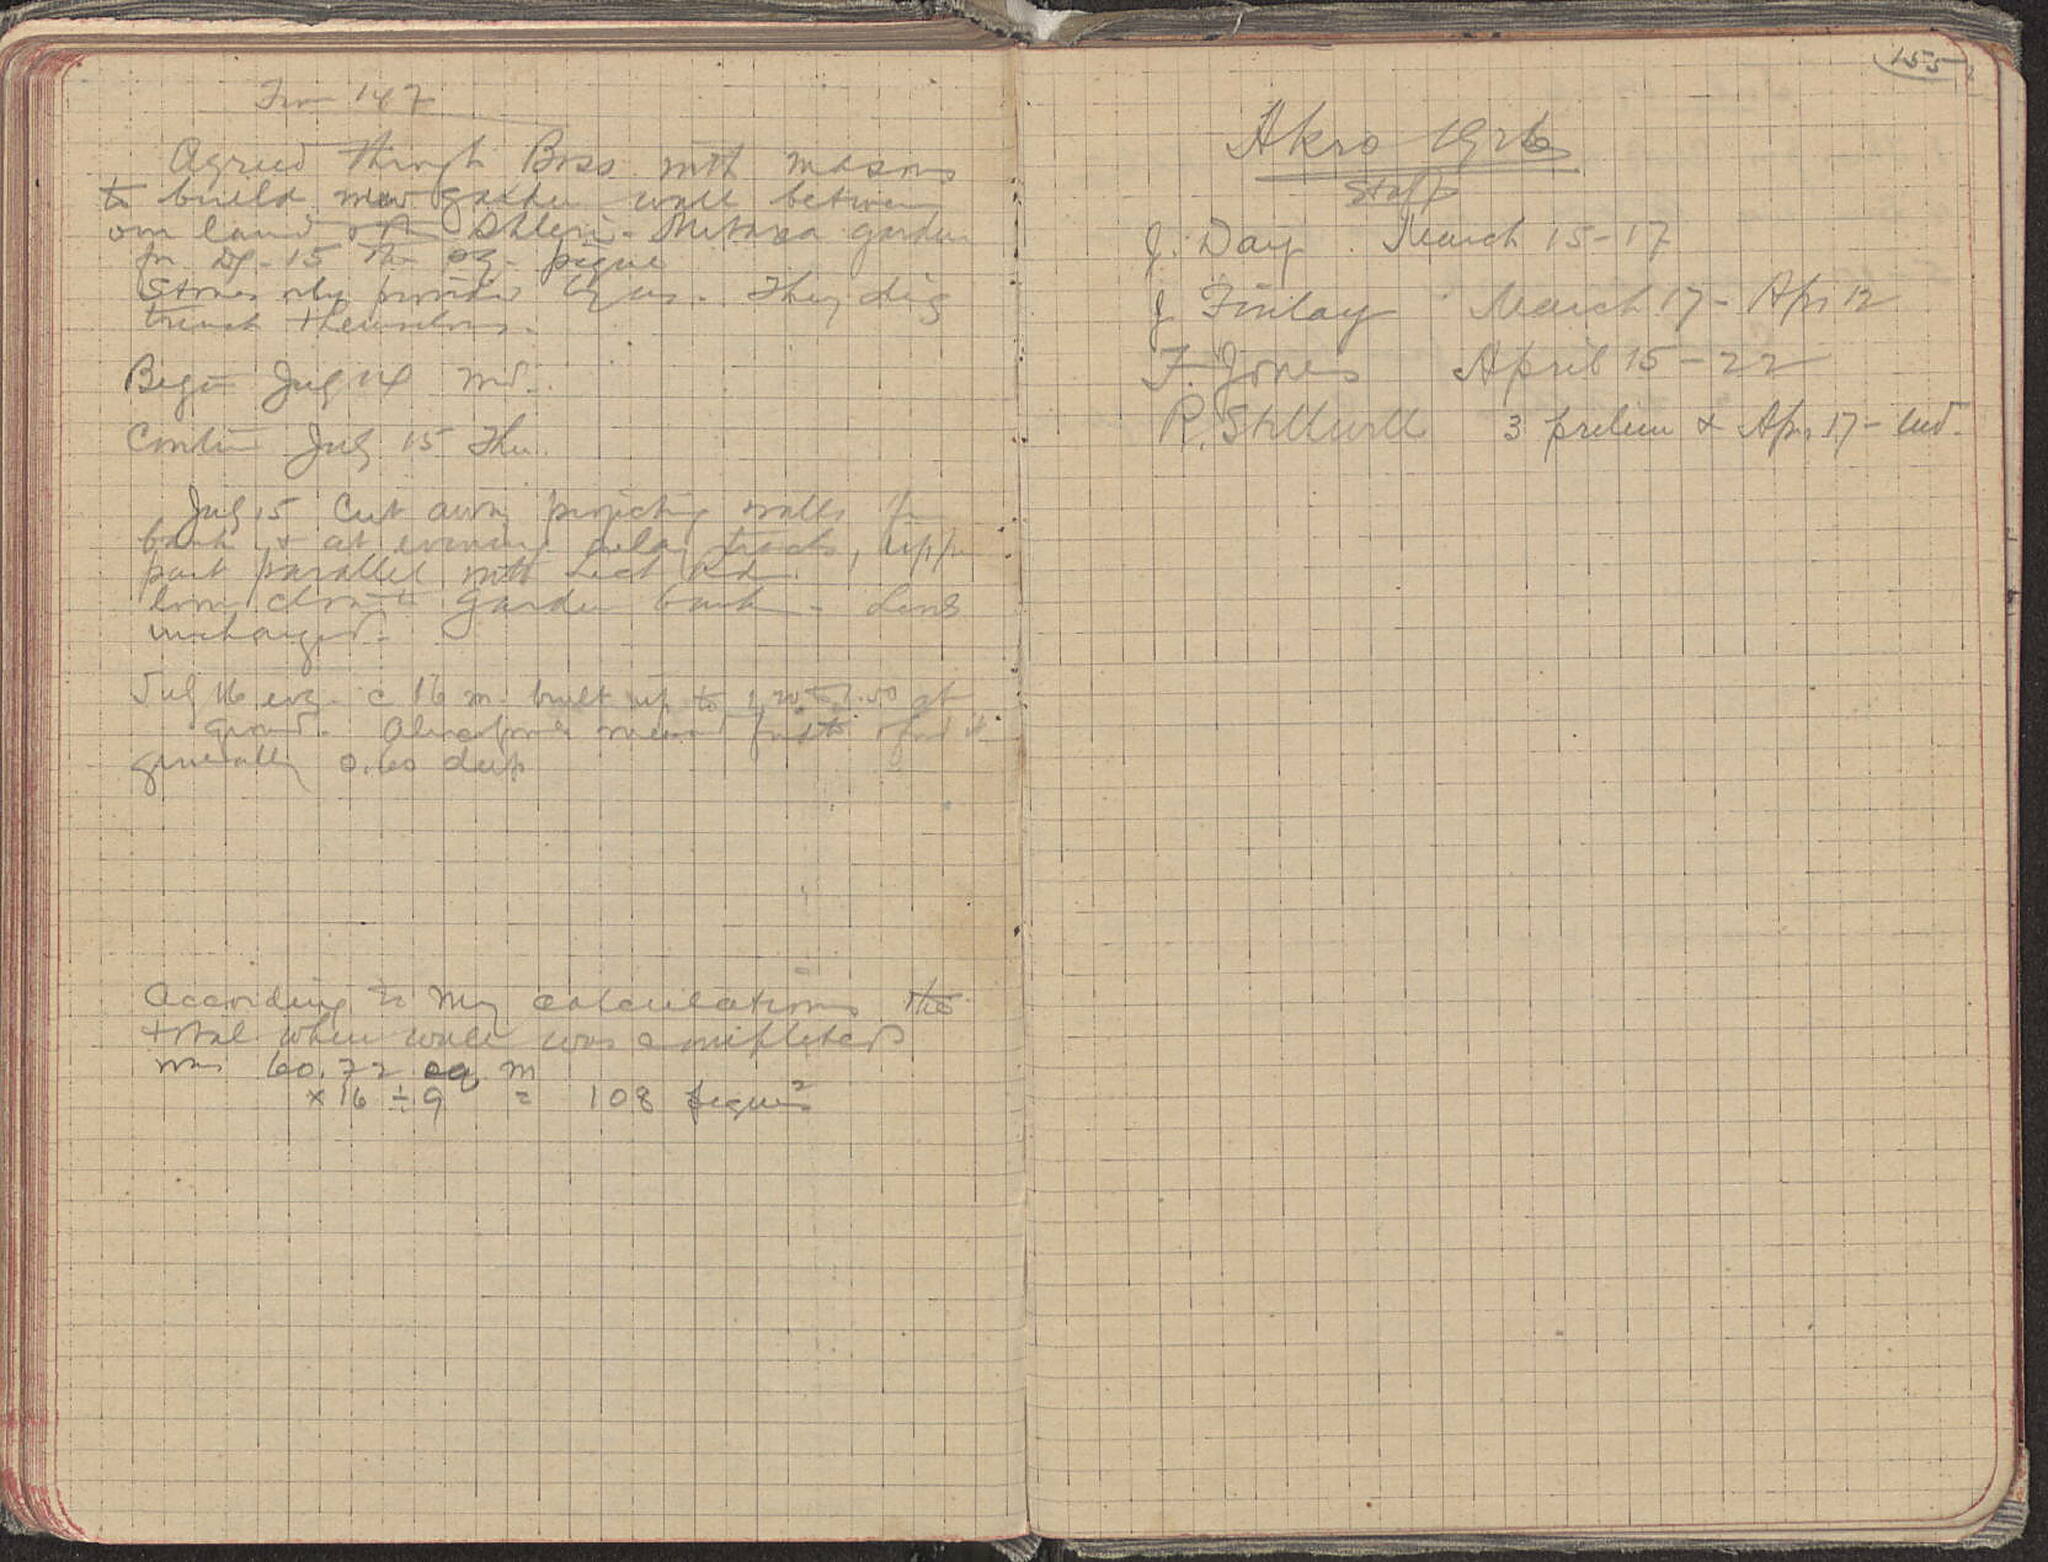 From 147
Agreed through Boss with masons
to build new garden wall between
our land & the Shleri-Metaxa garden
for Dr-15 the sq. pique
Stones only provided by us. They dig
trench themselves.
Begin July 14 Wed.
Contin July 15 Thu.
July 15 Cut away projecting walls fr
bank & at evening tracks, upper
part parallel with Lech Rd
lower close to garden bank - Line
unchanged.
July 16 evg. c 16 m. built up to 1.20 to 1.50 at
ground.
generally 0.60 deep
According to my calculations the
total when wall was completed
was 60.72 sq m
× 16 ÷ 9 = 108 piques²
155
Akro 1926
Staff
J. Day. March 15-17
J Finlay March 17 - Apr 12
F. Jones April 15-22
R. Stillwell 3 prelim & Apr. 17- end.